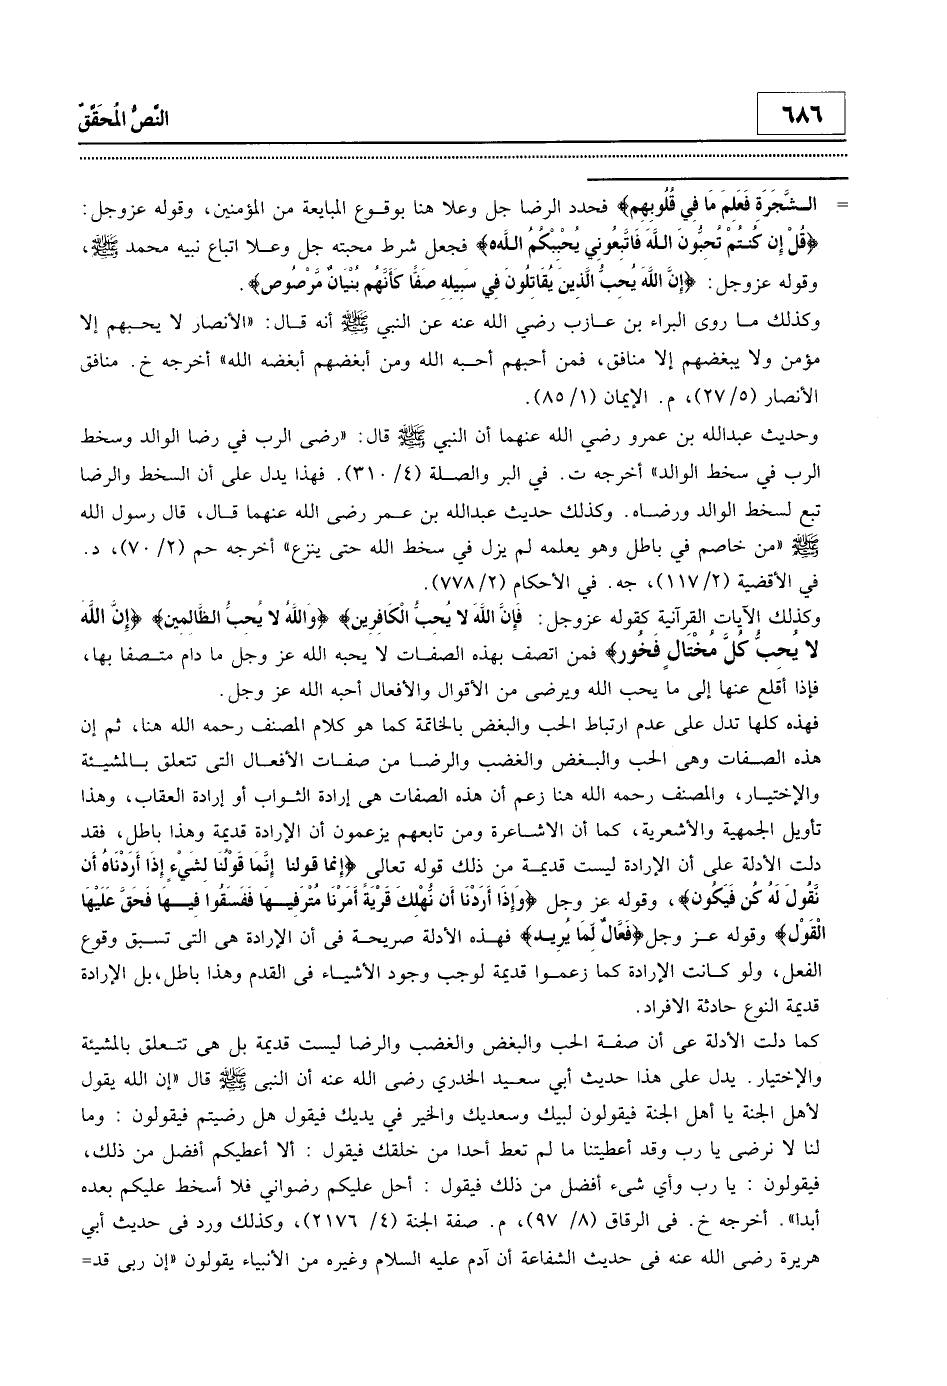 ٦٨٦
النَّصُّ المُحَقَّقُ
= الـشَّجَرَةِ فَعَلِمَ مَا فِي قُلُوبِهِم﴾ فحدد الرضا جل وعلا هنا بوقـوع المبايعة من المؤمنين، وقوله عزوجل:
﴿قُلْ إِن كُنتُمْ تُحِبُّونَ اللَّهَ فَاتَّبِعُونِي يُحْبِبْكُمُ اللَّه﴾ فجعل شرط محبته جل وعـلا اتباع نبيه محمد ﷺ،
وقوله عزوجل: ﴿إِنَّ اللَّهَ يُحِبُّ الَّذِينَ يُقَاتِلُونَ فِي سَبِيلِه صَفًّا كَأَنَّهُم بُنْيَانٌ مَّرْصُوص﴾.
وكذلك مـا روى البراء بن عـازب رضي الله عنه عن النبي ﷺ أنه قـال: «الأنصار لا يحـبهم إلا
مؤمن ولا يبغضهم إلا منافق، فمن أحبهم أحـبه الله ومن أبغضهم أبغضه الله» أخرجه خ. منافق
الأنصار (٥/ ٢٧)، م. الإيمان (١/ ٨٥).
وحديث عبدالله بن عمرو رضي الله عنهما أن النبي ﷺ قال: «رضى الرب في رضا الوالد وسخط
الرب في سخط الوالد» أخرجه ت. في البر والصـلة (٤/ ٣١٠). فهذا يدل على أن السخط والرضا
تبع لسخط الوالد ورضـاه. وكذلك حديث عبدالله بن عـمر رضى الله عنهما قـال، قال رسول الله
ﷺ «من خاصم في باطل وهو يعلمه لم يزل في سخط الله حتى ينزع» أخرجه حم (٢/ ٧٠)، د.
في الأقضية (٢/ ١١٧)، جه. في الأحكام (٢/ ٧٧٨).
وكذلك الآيات القرآنية كقوله عزوجل: فَإِنَّ اللَّهَ لا يُحِبُّ الْكَافِرِين﴾ ﴿وَاللَّهُ لا يُحِبُّ الظَّالِمِين﴾ ﴿إِنَّ اللَّهَ
لا يُحِبُّ كُلَّ مُخْتَالٍ فَخُور﴾ فمن اتصف بهذه الصفـات لا يحبه الله عز وجل ما دام متـصفا بها،
فإذا أقلع عنها إلى ما يحب الله ويرضى من الأقوال والأفعال أحبه الله عز وجل.
فهذه كلها تدل على عدم ارتباط الحب والبغض بالخاتمة كما هو كلام المصنف رحمه الله هنا، ثم إن
هذه الصـفات وهى الحب والبـغض والغضب والرضـا من صفـات الأفعـال التى تتعلق بـالمشيـئة
والإختيـار، والمصنف رحمه الله هنا زعم أن هذه الصفات هى إرادة الثـواب أو إرادة العقاب، وهذا
تأويل الجمهية والأشعرية، كما أن الاشـاعرة ومن تابعهم يزعمون أن الإرادة قديمة وهذا باطل، فقد
دلت الأدلة على أن الإرادة ليست قديمـة من ذلك قوله تعالى ﴿إنما قولنا إِنَّمَا قَوْلُنَا لِشَيْءٍ إِذَا أَرَدْنَاهُ أَن
نَّقُولَ لَهُ كُن فَيَكُون﴾، وقوله عز وجل ﴿وَإِذَا أَرَدْنَا أَن نُّهْلِكَ قَرْيَةً أَمَرْنَا مُتْرَفِيـهَا فَفَسَقُوا فِيـهَا فَحَقَّ عَلَيْهَا
الْقَوْل﴾ وقوله عـز وجل ﴿فَعَّالٌ لِّمَا يُرِيـد﴾ فهـذه الأدلة صريحـة فى أن الإرادة هى التى تـسبق وقوع
الفعل، ولو كـانت الإرادة كما زعمـوا قديمة لوجب وجود الأشيـاء فى القدم وهذا باطل،بل الإرادة
قديمة النوع حادثة الافراد.
كما دلت الأدلة عى أن صفـة الحب والبغض والغضب والرضا ليست قديمة بل هى تتـعلق بالمشيئة
والإختيـار. يدل على هذا حديث أبي سعـيد الخدري رضى الله عنه أن النبى ﷺ قال «إن الله يقول
لأهل الجنة يا أهل الجنة فيقولون لبيك وسعديك والخير في يديك فيقول هل رضيتم فيقولون : وما
لنا لا نرضى يا رب وقد أعطيتنا ما لم تعط أحدا من خلقك فيقول : ألا أعطيكم أفضل من ذلك،
فيقولون : يا رب وأي شىء أفضل من ذلك فيقول : أحل عليكم رضواني فلا أسخط عليكم بعده
أبدا». أخرجه خ. فى الرقاق (٨/ ٩٧)، م. صفة الجنة (٤/ ٢١٧٦)، وكذلك ورد فى حديث أبي
هريرة رضى الله عنه فى حديث الشفاعة أن آدم عليه السلام وغيره من الأنبياء يقولون «إن ربى قد=